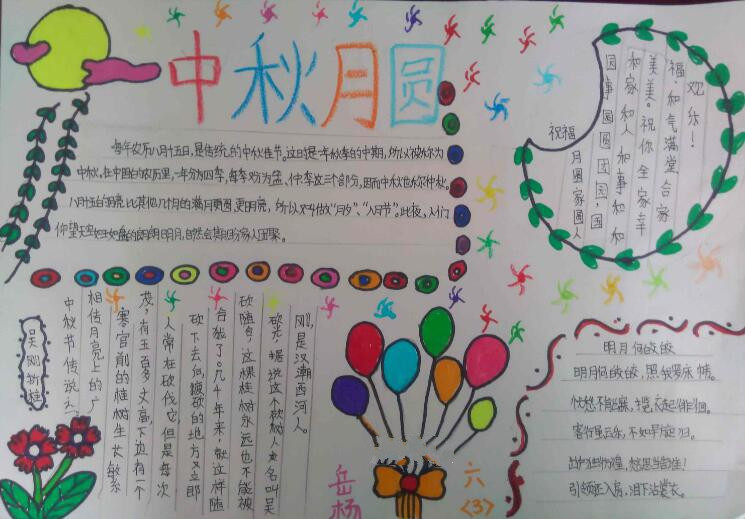 中秋月圆
每年农历八月十五日,是传统的中秋佳节。这时是一年秋季的中期,所以被称为
中秋。在中国的农历里,一年分为四季,每季又分为孟、仲、季三个部分,因而中秋也称仲秋。
八月十五的月亮比其他几个月的满月更圆,更明亮,所以又叫做“月夕”、“八月节”。此夜,人们
仰望天空如玉如盘的朗朗明月,自然会期盼家人团聚。
祝福
月圆家圆人
圆事圆圆团团,国
和家和人和事和和
美美。祝你全家幸
福、和气满堂合家
欢乐!
吴刚折桂
中秋节传说之二
相传月亮上的广
寒宫前的桂树生长繁
茂,有五百多丈高,下边有一个
人常在砍伐它,但是每次
砍下去,被砍的地方又立即
合拢了。几千年来,就这样随
砍随合,这棵桂树永远也不能被
砍光。据说这个砍树人名叫吴
刚,是汉潮西河人。
明月何皎皎
明月何皎皎,照我罗床帏。
忧愁不能寐,揽衣起徘徊。
客行虽云乐,不如早旋归。
出户独彷徨,愁思当告谁!
引领还入房,泪下沾裳衣。
六
<3>
岳杨